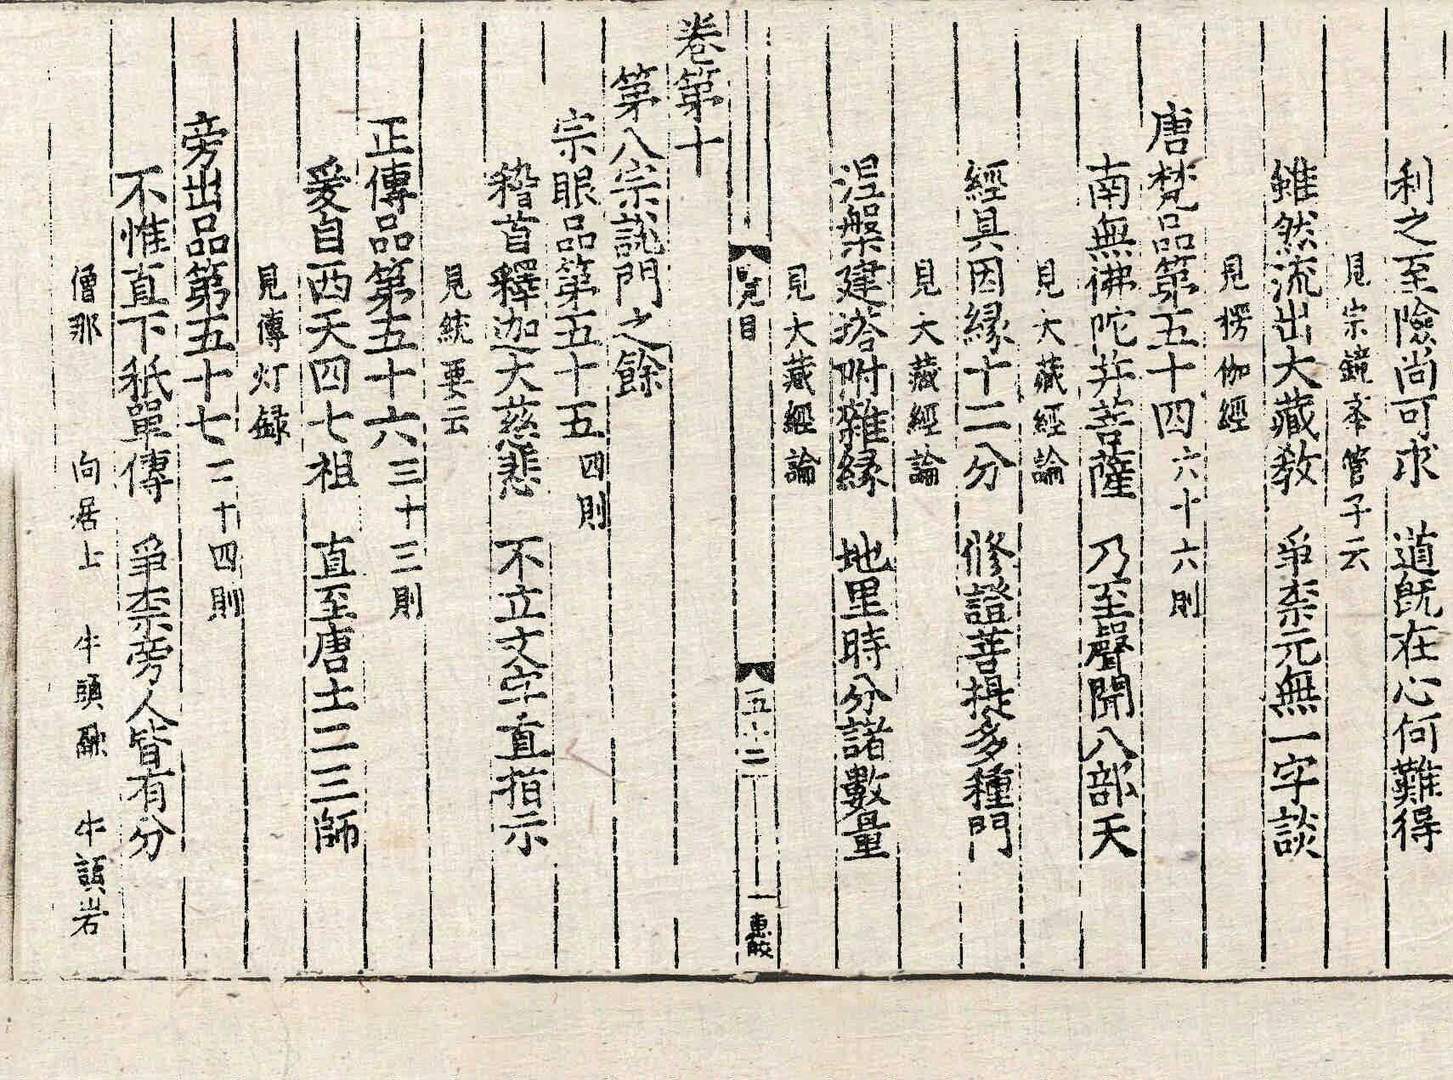 利之至險尚可求　道既在心何難得
見宗鏡
管子云
雖然流出大藏教　爭柰元無一字談
見楞伽經
唐梵品第五十四　六十六則
南無佛陀并菩薩　乃至聲聞八部天
見大藏經論
經具因縁十二分　修證菩提多種門
見大藏經論
涅槃建塔附雜縁　地里時分諸數量
見大藏經論
目
五
卷第十
第八宗說門之餘
宗眼品第五十五　四則
稽首釋迦大慈悲　不立文字直指示
見統要云
正傳品第五十六　三十三則
爰自西天四七祖　直至唐土二三師
見傳灯録
旁出品第五十七　二十四則
不惟直下秖單傳　爭柰旁人皆有分
僧那　向居士　牛頭融　牛頭岩